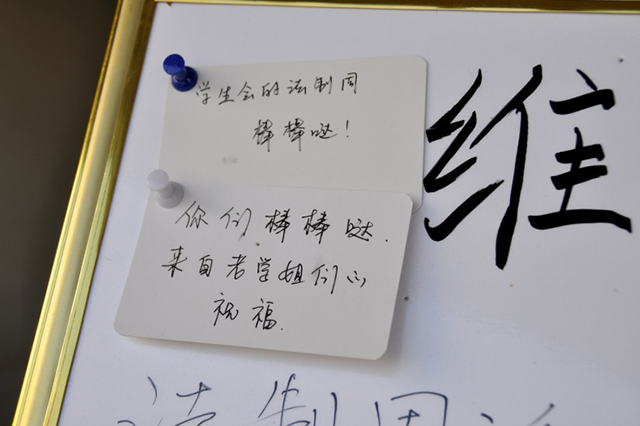 学生会的法制周
棒棒哒！
你们棒棒哒.
来自老学姐们心
祝福.
维
法制周